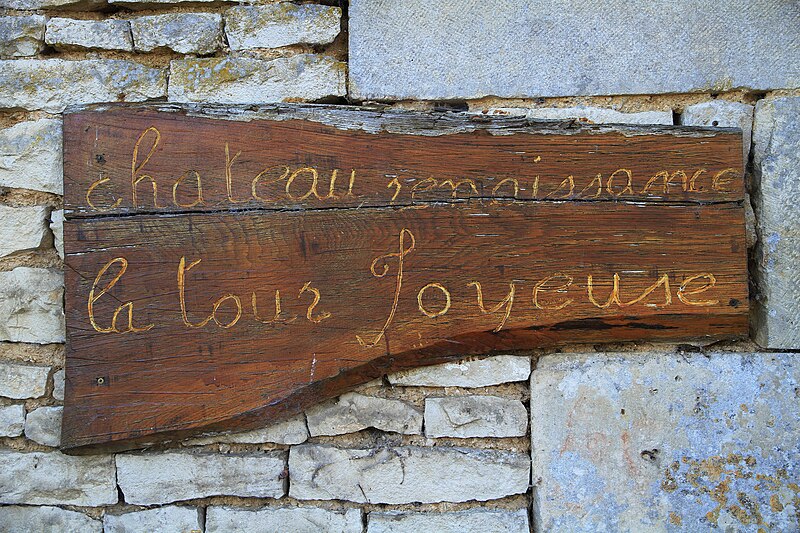 chateau renaissance
la tour Joyeuse